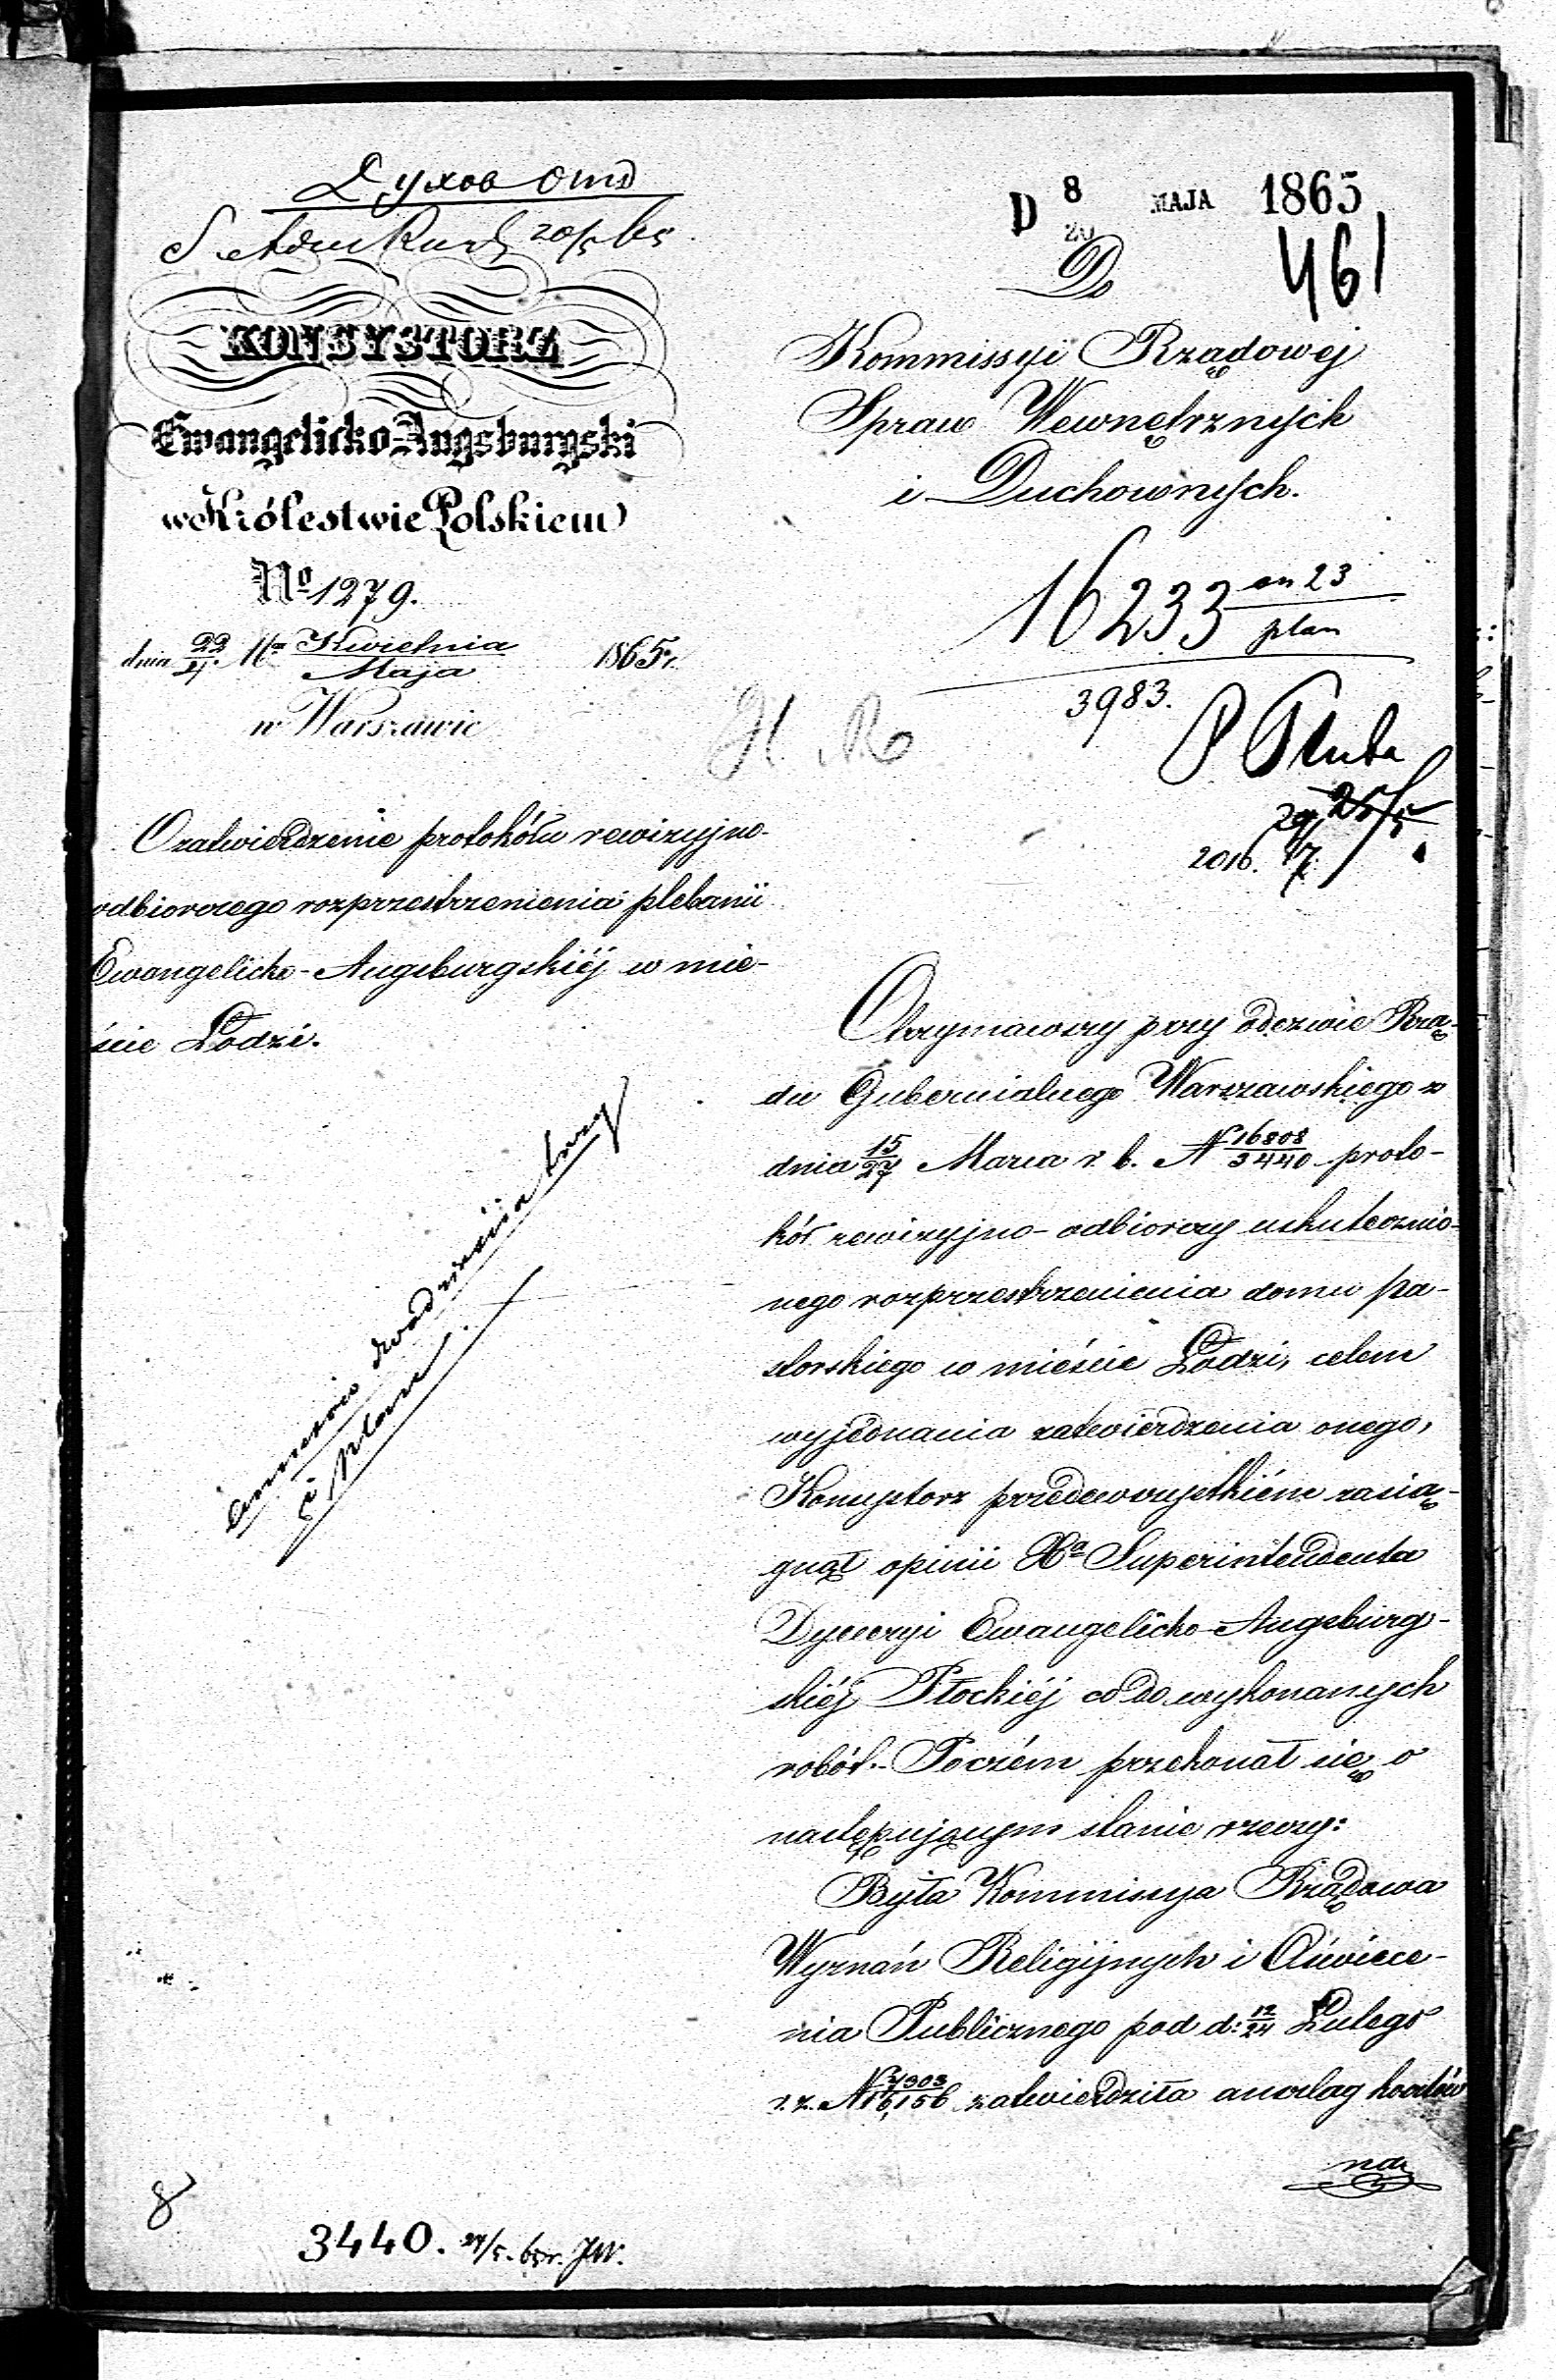 Духов Отд
20/5 65
D 8/20 MAJA 1865
461
KONSYSTORZ
Ewangelicko-Augsburgski
w Królestwie Polskiem
No 1279.
dnia 22/4 Ma Kwietnia/Maja 1865 r.
w Warszawie
Do
Kommissyi Rządowej
Spraw Wewnętrznych
i Duchownych.
16233 an 23/plan
3983.
O zatwierdzenie protokółu rewizyjno-
odbiorczego rozprzestrzenienia plebanii
Ewangelicko-Augsburgskiéj w mie-
ście Łodzi.
annexów dwadzieścia trzy
i plan.
Otrzymawszy przy odezwie Rzą-
du Gubernialnego Warszawskiego z
dnia 15/27 Marca r. b. N 16808/3440 proto-
kół rewizyjno-odbiorczy uskutecznio-
nego rozprzestrzenienia domu pa-
storskiego w mieście Łodzi, celem
wyjednania zatwierdzenia onego,
Konsystorz przedewszystkiém zasią-
gnął opinii Xa Superintendenta
Dyecezyi Ewangelicko-Augsburg-
skiéj Płockiéj co do wykonanych
robót.- Poczém przekonał się o
następującym stanie rzeczy:
Była Kommissya Rządowa
Wyznań Religijnych i Oświece-
nia Publicznego pod d: 12/24 Lutego
r. z. N 7303/16,156 zatwierdziła anszlag kosztów
na
8
3440. 27/5. 65 r. JW.